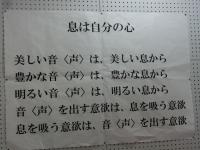 息は自分の心
美しい音〈声〉は、美しい息から
豊かな音〈声〉は、豊かな息から
明るい音〈声〉は、明るい息から
音〈声〉を出す意欲は、息を吸う意欲
息を吸う意欲は、音〈声〉を出す意欲